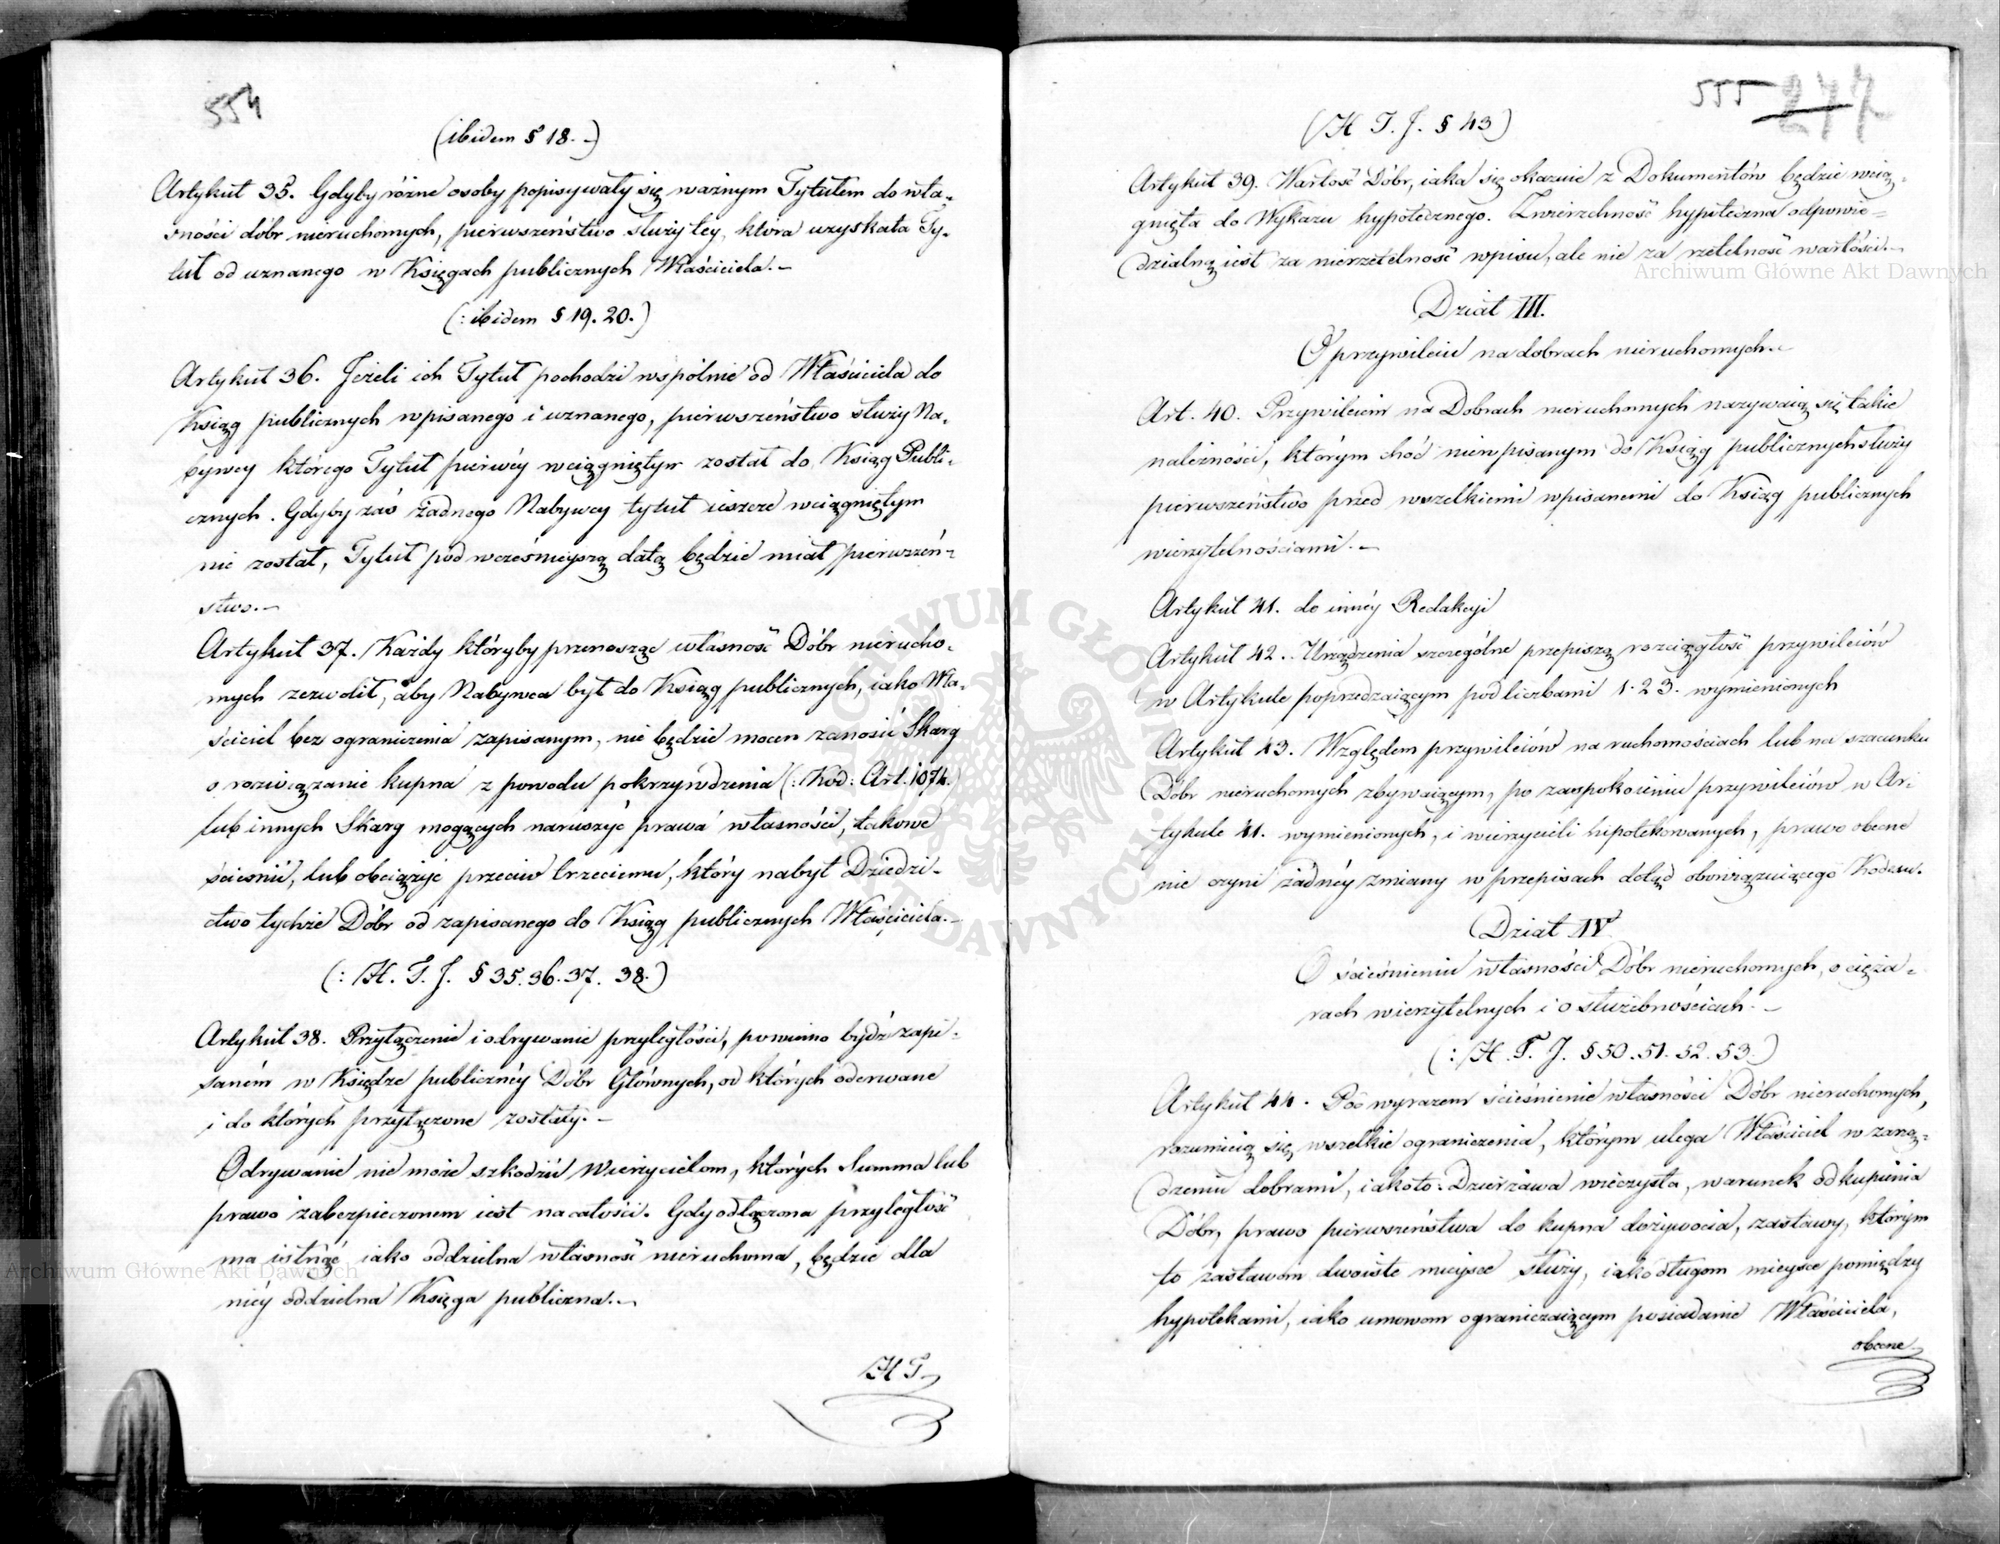 554
(ibidem § 18. -)
Artykuł 35. Gdyby różne osoby popisywały się ważnym Tytułem do wła-
sności dóbr nieruchomych, pierwszeństwo służy tey, która uzyskała Ty-
tuł od uznanego w Księgach publicznych Właściciela. -
(: ibidem § 19. 20. )
Artykuł 36. Jeżeli ich Tytuł pochodzi wspólnie od Właściciela do
Ksiąg publicznych wpisanego i uznanego, pierwszeństwo służy Na-
bywcy którego Tytuł pierwéy wciągniętym został do Ksiąg Publi-
cznych. Gdyby zaś żadnego Nabywcy tytuł ieszcze wciągniętym
nie został, Tytuł pod wcześnieyszą datą będzie miał pierwszeń-
stwo. -
Artykuł 37. Każdy któryby przenosząc własność Dóbr nierucho-
mych zezwolił, aby Nabywca był do Ksiąg publicznych, iako Wła-
ściciel bez ograniczenia zapisanym, nie będzie mocen zanosić Skarg
o rozwiązanie kupna z powodu pokrzywdzenia (: Kod: Art. 1074.)
lub innych Skarg mogących naruszyć prawa własności, takowe
ścieśnić, lub obciążyć przeciw trzeciemu, który nabył Dziedzi-
ctwo tychże Dóbr od zapisanego do Ksiąg publicznych Właściciela. -
(: H. T. J. § 35. 36. 37. 38. )
Artykuł 38. Przyłączenie i odrywanie przyległości, powinno bydź zapi-
saném w Księdze publicznéy Dóbr Głównych, od których oderwane
i do których przyłączone zostały. -
Odrywanie nie może szkodzić Wierzycielom, których Summa lub
prawo zabezpieczonem iest na całości. Gdy odłączona przyległość
ma istnąć iako oddzielna własność nieruchoma, będzie dla
niéy oddzielna Księga publiczna. -
H T
555 277
(H T. J. § 43)
Artykuł 39. Wartość Dóbr, iaka się okazuie z Dokumentów będzie wcią-
gnięta do Wykazu hypotecznego. Zwierzchność hypoteczna odpowie-
dzialną iest za nierzetelność wpisu, ale nie za rzetelność wartości. -
Dział III.
O przywileiu na dobrach nieruchomych. -
Art. 40. Przywileiem na Dobrach nieruchomych nazywaią się takie
należności, którym choć niewpisanym do Ksiąg publicznych służy
pierwszeństwo przed wszelkiemi wpisanemi do Ksiąg publicznych
wierzytelnościami. -
Artykuł 41. do innéy Redakcyi
Artykuł 42. Urządzenia szczególne przepiszą rozciągłość przywileiów
w Artykule poprzedzaiącym pod liczbami 1. 2 3. wymienionych
Artykuł 43. Względem przywileiów na ruchomościach lub na szacunku
Dóbr nieruchomych zbywaiącym, po zaspokoieniu przywileiów w Ar-
tykule 41. wymienionych, i wierzycieli hipotekowanych, prawo obecne
nie czyni żadnéy zmiany w przepisach dotąd obowiązuiącego Kodexu.
Dział IV
O ścieśnieniu własności Dóbr nieruchomych, o cięża-
rach wierzytelnych i o służebnościach. -
(: H. T. J. § 50. 51. 52. 53. )
Artykuł 44. Pod wyrazem ścieśnienie własności Dóbr nieruchomych,
rozumieią się wszelkie ograniczenia, którym ulega Właściciel w zarzą-
dzeniu dobrami, iakoto: Dzierżawa wieczysta, warunek odkupienia
Dóbr, prawo pierwszeństwa do kupna dożywocia, zastawy, którym
to zastawom dwoiste mieysce służy, iako długom mieysce pomiędzy
hypotekami, iako umowom ograniczaiącym posiadanie Właściciela,
obecne
Archiwum Główne Akt Dawnych
Archiwum Główne Akt Dawnych
ARCHIWUM GŁÓWNE AKT DAWNYCH